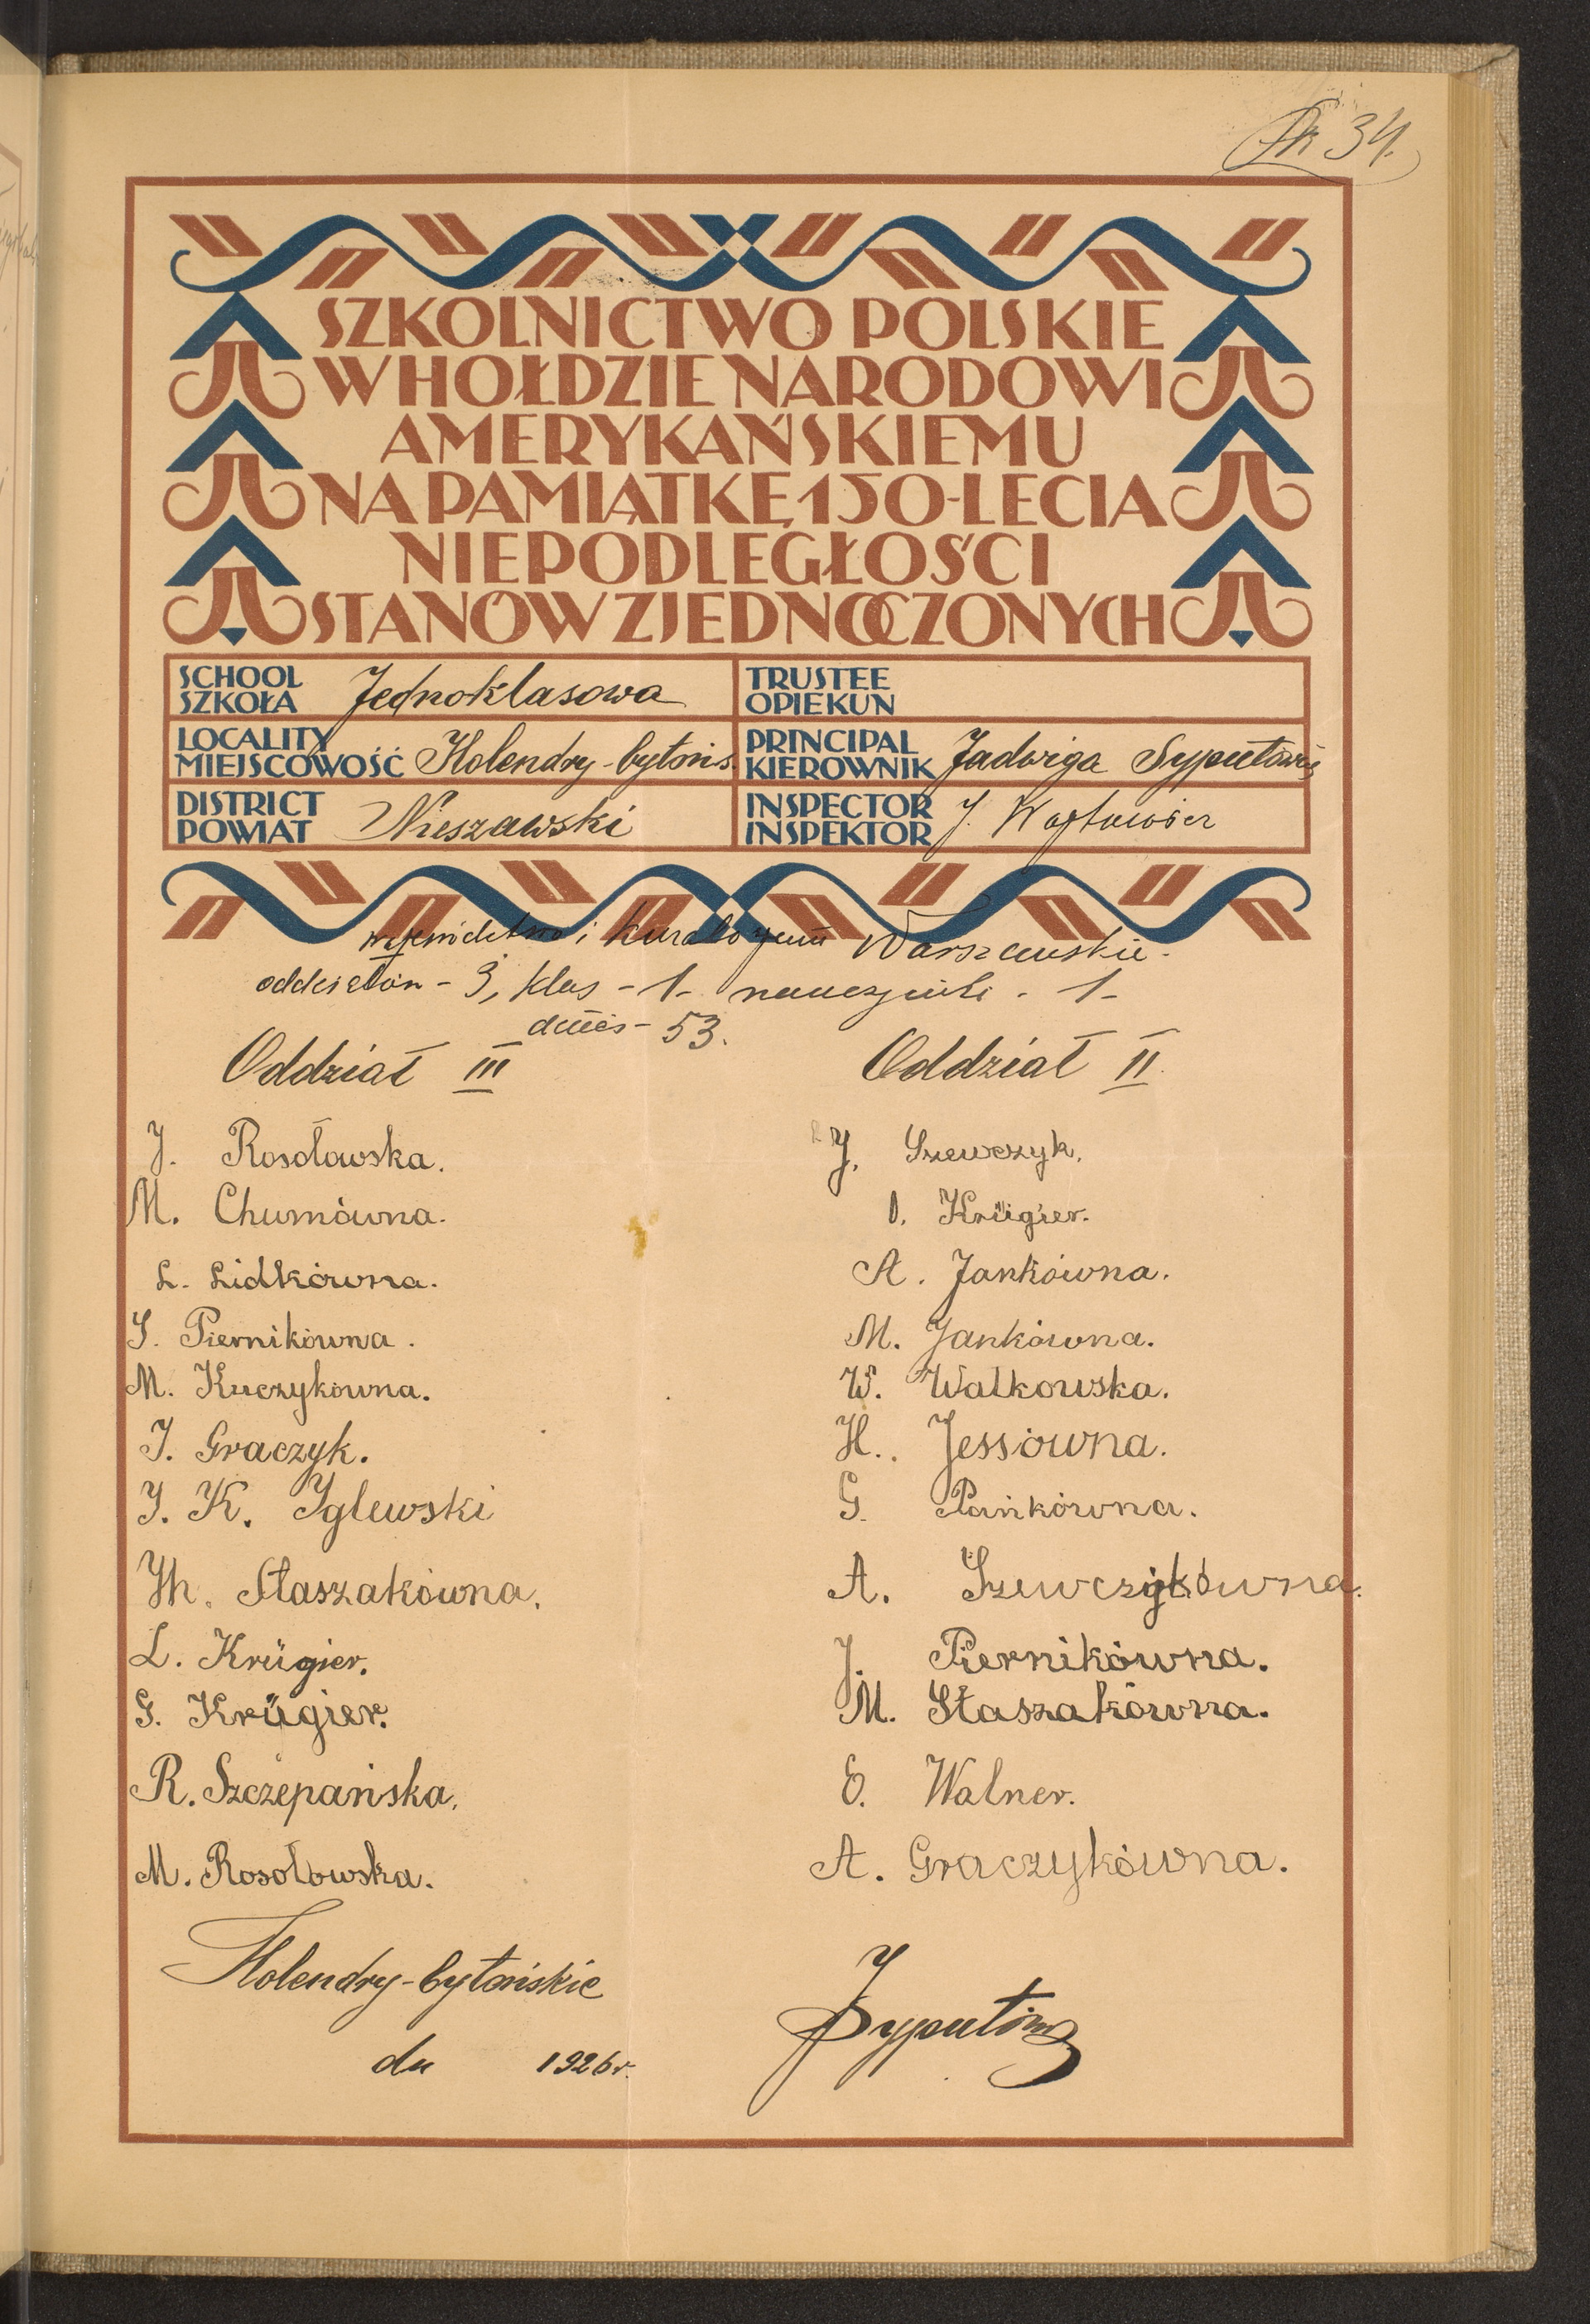 34.
SZKOLNICTWO POLSKIE
W HOŁDZIE NARODOWI
AMERYKAŃSKIEMU
NA PAMIĄTKĘ 150-LECIA
NIEPODLEGŁOŚCI
STANÓW ZJEDNOCZONYCH
SCHOOL
SZKOŁA Jednoklasowa
TRUSTEE
OPIEKUN
LOCALITY
MIEJSCOWOŚĆ Holendry-bytońs.
PRINCIPAL
KIEROWNIK Jadwiga
DISTRICT
POWIAT Nieszawski
INSPECTOR
INSPEKTOR J.
województwo i Kuratorjum Warszawskie.
oddziałów - 3, klas - 1 - nauczycieli - 1 -
dzieci - 53.
Oddział III
J. Rosołowska.
M. Chumówna.
L. Lidkówna.
S. Piernikówna.
M. Kuczykówna.
J. Graczyk.
J. K. Iglewski
M. Staszakówna.
L. Krügier.
G. Krügier.
R. Szczepańska.
M. Rosołowska.
Oddział II.
J. Szewczyk.
O. Krügier.
A. Jankówna.
M. Jankówna.
W. Walkowska.
H. Jessówna.
G. Pańkówna.
A. Szewczykówna.
J. Piernikówna.
M. Staszakówna.
E. Walner.
A. Graczykówna.
Holendry-bytońskie
dn 1926 r.